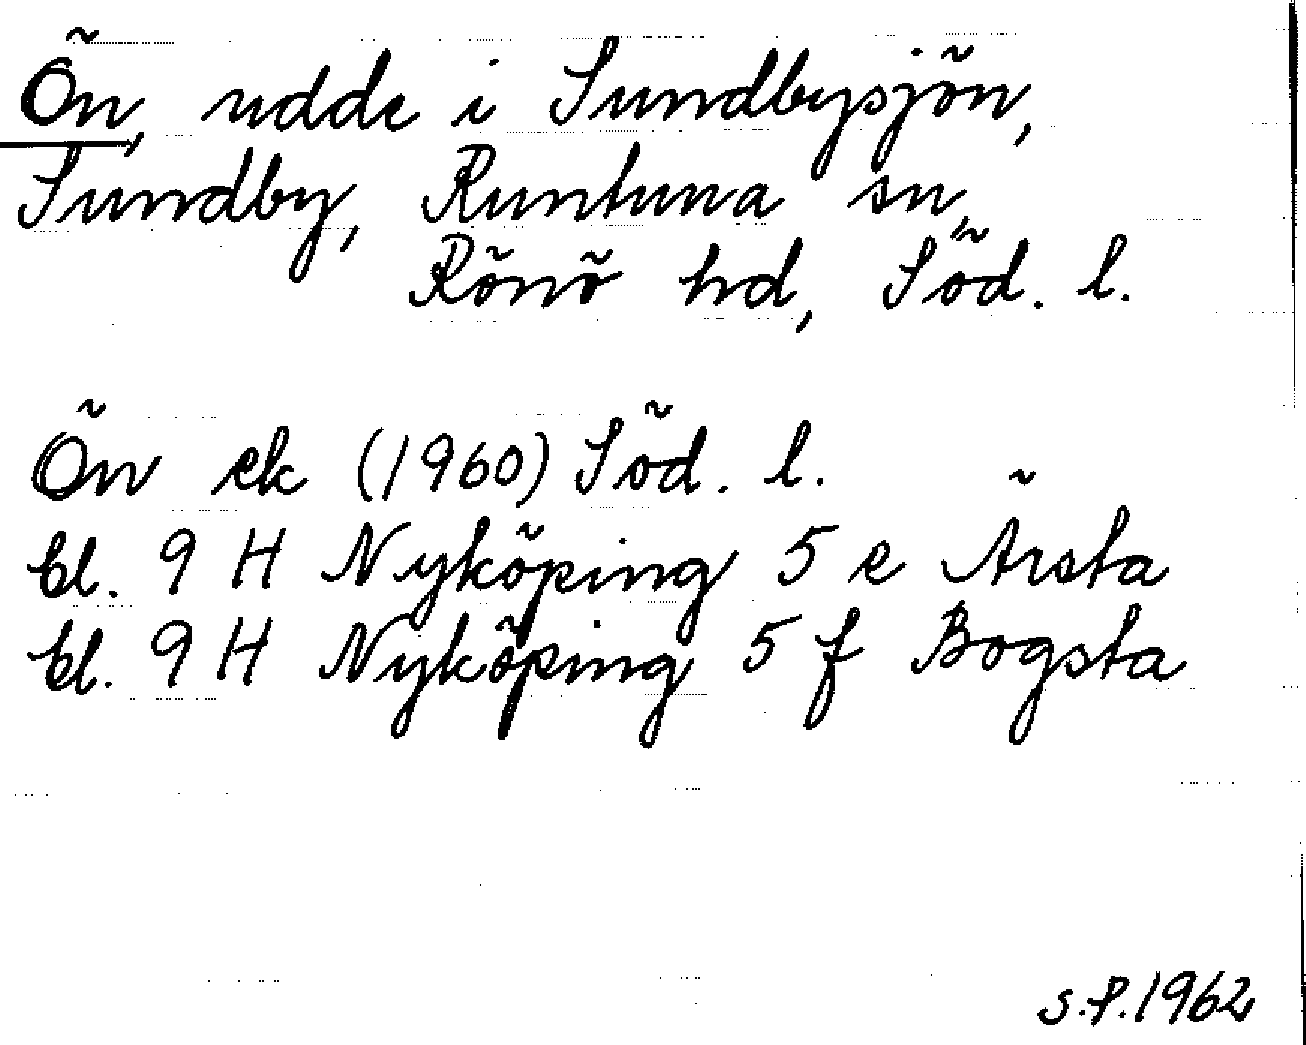 Ön, udde i Sundbysjön,
Sundby, Runtuna sn,
Rönö hd, Söd. l.
Ön ek (1960) Söd. l.
bl. 9 H Nyköping 5 e Ärsta
bl. 9 H Nyköping 5 f Bogsta
S.P. 1962